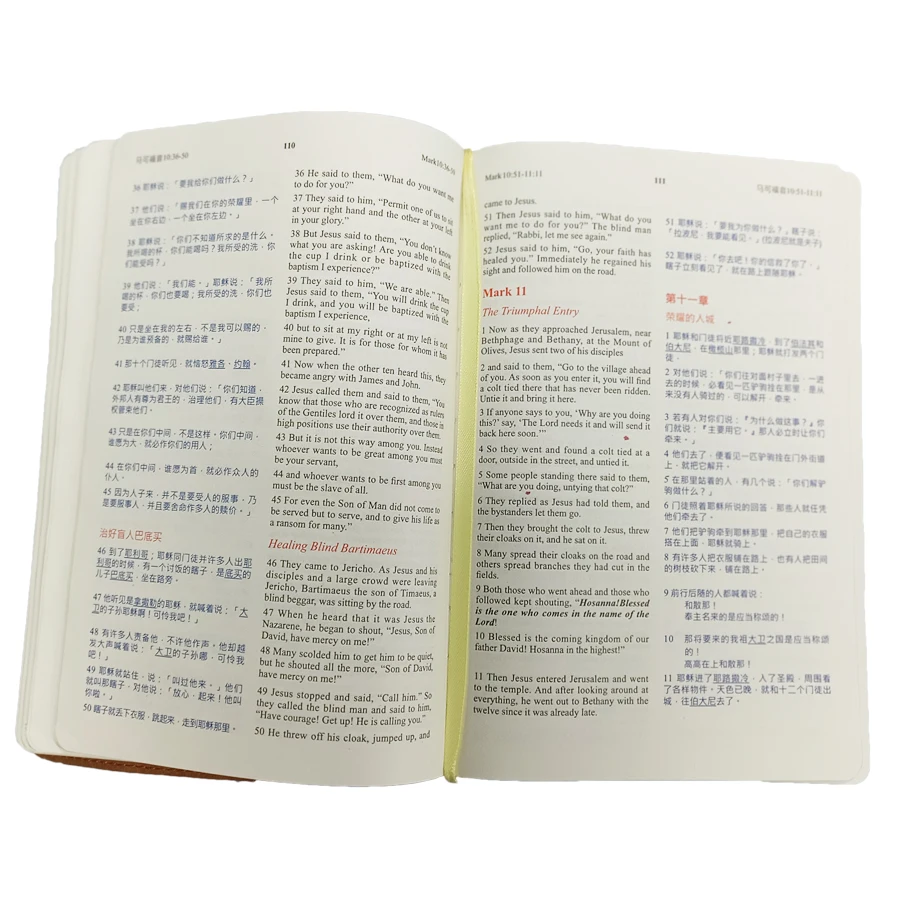 马可福音10:36-50
110
Mark10:36-50
36 耶稣说：「要我给你们做什么？」
37 他们说：「赐我们在你的荣耀里，一个
坐在你右边，一个坐在你左边。」
38 耶稣说：「你们不知道所求的是什么。
我所喝的杯，你们能喝吗？我所受的洗，你
们能受吗？」
39 他们说：「我们能。」耶稣说：「我所
喝的杯，你们也要喝；我所受的洗，你们也
要受；
40 只是坐在我的左右，不是我可以赐的，
乃是为谁预备的，就赐给谁。」
41 那十个门徒听见，就恼怒雅各、约翰。
42 耶稣叫他们来，对他们说：「你们知道，
外邦人有尊为君王的，治理他们，有大臣操
权管束他们。
43 只是在你们中间，不是这样。你们中间，
谁愿为大，就必作你们的用人；
44 在你们中间，谁愿为首，就必作众人的
仆人。
45 因为人子来，并不是要受人的服事，乃
是要服事人，并且要舍命作多人的赎价。」
治好盲人巴底买
46 到了耶利哥；耶稣同门徒并许多人出耶
利哥的时候，有一个讨饭的瞎子，是底买的
儿子巴底买，坐在路旁。
47 他听见是拿撒勒的耶稣，就喊着说：「大
卫的子孙耶稣啊！可怜我吧！」
48 有许多人责备他，不许他作声。他却越
发大声喊着说：「大卫的子孙哪，可怜我
吧！」
49 耶稣就站住，说：「叫过他来。」他们
就叫那瞎子，对他说：「放心，起来！他叫
你啦。」
50 瞎子就丢下衣服，跳起来，走到耶稣那里。
36 He said to them, “What do you want me
to do for you?”
37 They said to him, “Permit one of us to sit
at your right hand and the other at your left
in your glory.”
38 But Jesus said to them, “You don't know
what you are asking! Are you able to drink
the cup I drink or be baptized with the
baptism I experience?”
39 They said to him, “We are able.” Then
Jesus said to them, “You will drink the cup
I drink, and you will be baptized with the
baptism I experience,
40 but to sit at my right or at my left is not
mine to give. It is for those for whom it has
been prepared.”
41 Now when the other ten heard this, they
became angry with James and John.
42 Jesus called them and said to them, “You
know that those who are recognized as rulers
of the Gentiles lord it over them, and those in
high positions use their authority over them.
43 But it is not this way among you. Instead
whoever wants to be great among you must
be your servant,
44 and whoever wants to be first among you
must be the slave of all.
45 For even the Son of Man did not come to
be served but to serve, and to give his life as
a ransom for many.”
Healing Blind Bartimaeus
46 They came to Jericho. As Jesus and his
disciples and a large crowd were leaving
Jericho, Bartimaeus the son of Timaeus, a
blind beggar, was sitting by the road.
47 When he heard that it was Jesus the
Nazarene, he began to shout, “Jesus, Son of
David, have mercy on me!”
48 Many scolded him to get him to be quiet,
but he shouted all the more, “Son of David,
have mercy on me!”
49 Jesus stopped and said, “Call him.” So
they called the blind man and said to him,
“Have courage! Get up! He is calling you.”
50 He threw off his cloak, jumped up, and
Mark10:51-11:11
111
马可福音10:51-11:11
came to Jesus.
51 Then Jesus said to him, “What do you
want me to do for you?” The blind man
replied, “Rabbi, let me see again.”
52 Jesus said to him, “Go, your faith has
healed you.” Immediately he regained his
sight and followed him on the road.
Mark 11
The Triumphal Entry
1 Now as they approached Jerusalem, near
Bethphage and Bethany, at the Mount of
Olives, Jesus sent two of his disciples
2 and said to them, “Go to the village ahead
of you. As soon as you enter it, you will find
a colt tied there that has never been ridden.
Untie it and bring it here.
3 If anyone says to you, ‘Why are you doing
this?’ say, ‘The Lord needs it and will send it
back here soon.’”
4 So they went and found a colt tied at a
door, outside in the street, and untied it.
5 Some people standing there said to them,
“What are you doing, untying that colt?”
6 They replied as Jesus had told them, and
the bystanders let them go.
7 Then they brought the colt to Jesus, threw
their cloaks on it, and he sat on it.
8 Many spread their cloaks on the road and
others spread branches they had cut in the
fields.
9 Both those who went ahead and those who
followed kept shouting, “Hosanna!Blessed
is the one who comes in the name of the
Lord!
10 Blessed is the coming kingdom of our
father David! Hosanna in the highest!”
11 Then Jesus entered Jerusalem and went
to the temple. And after looking around at
everything, he went out to Bethany with the
twelve since it was already late.
51 耶稣说：「要我为你做什么？」瞎子说：
「拉波尼，我要能看见。」(拉波尼就是夫子)
52 耶稣说：「你去吧！你的信救了你了。」
瞎子立刻看见了，就在路上跟随耶稣。
第十一章
荣耀的入城
1 耶稣和门徒将近耶路撒冷，到了伯法其和
伯大尼，在橄榄山那里；耶稣就打发两个门
徒，
2 对他们说：「你们往对面村子里去，一进
去的时候，必看见一匹驴驹拴在那里，是从
来没有人骑过的，可以解开，牵来。
3 若有人对你们说：『为什么做这事？』你
们就说：『主要用它。』那人必立时让你们
牵来。」
4 他们去了，便看见一匹驴驹拴在门外街道
上，就把它解开。
5 在那里站着的人，有几个说：「你们解驴
驹做什么？」
6 门徒照着耶稣所说的回答，那些人就任凭
他们牵去了。
7 他们把驴驹牵到耶稣那里，把自己的衣服
搭在上面，耶稣就骑上。
8 有许多人把衣服铺在路上，也有人把田间
的树枝砍下来，铺在路上。
9 前行后随的人都喊着说：
和散那！
奉主名来的是应当称颂的！
10 那将要来的我祖大卫之国是应当称颂
的！
高高在上和散那！
11 耶稣进了耶路撒冷，入了圣殿，周围看
了各样物件。天色已晚，就和十二个门徒出
城，往伯大尼去了。